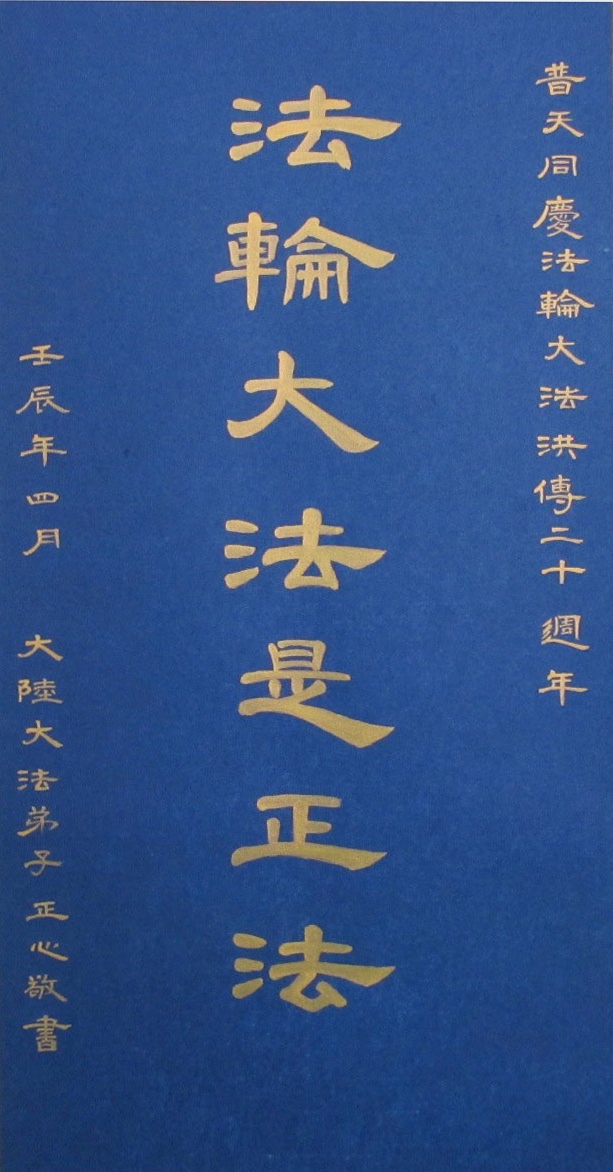 普天同慶法輪大法洪傳二十週年
法輪大法是正法
壬辰年四月 大陸大法弟子正心敬書